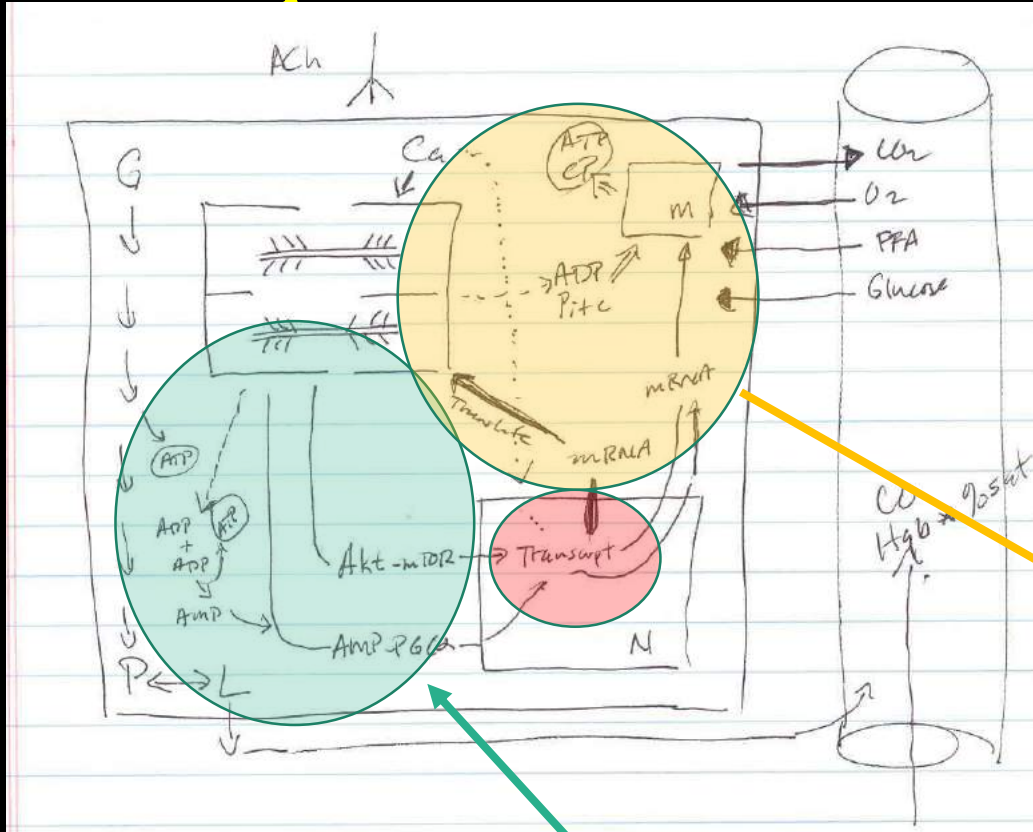 ACh
G
Ca
ATP
CP
M
CO2
O2
FFA
Glucose
ADP
Pi + C
mRNA
Translate
mRNA
ATP
ADP
+
ADP
ATP
AMP
Akt-mTOR
Transcript
AMP-PGCα
N
P
L
CO
Hgb * % sat.